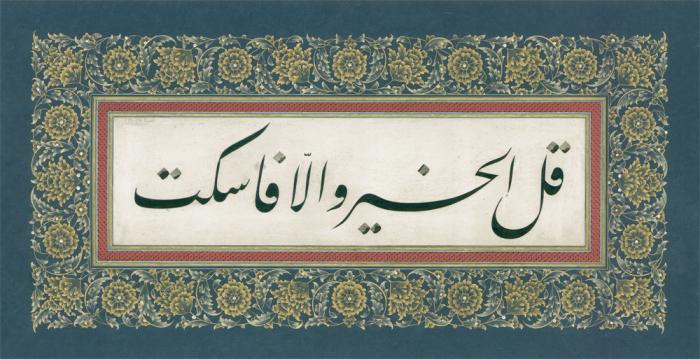 قل الخير و الّا فاسكت